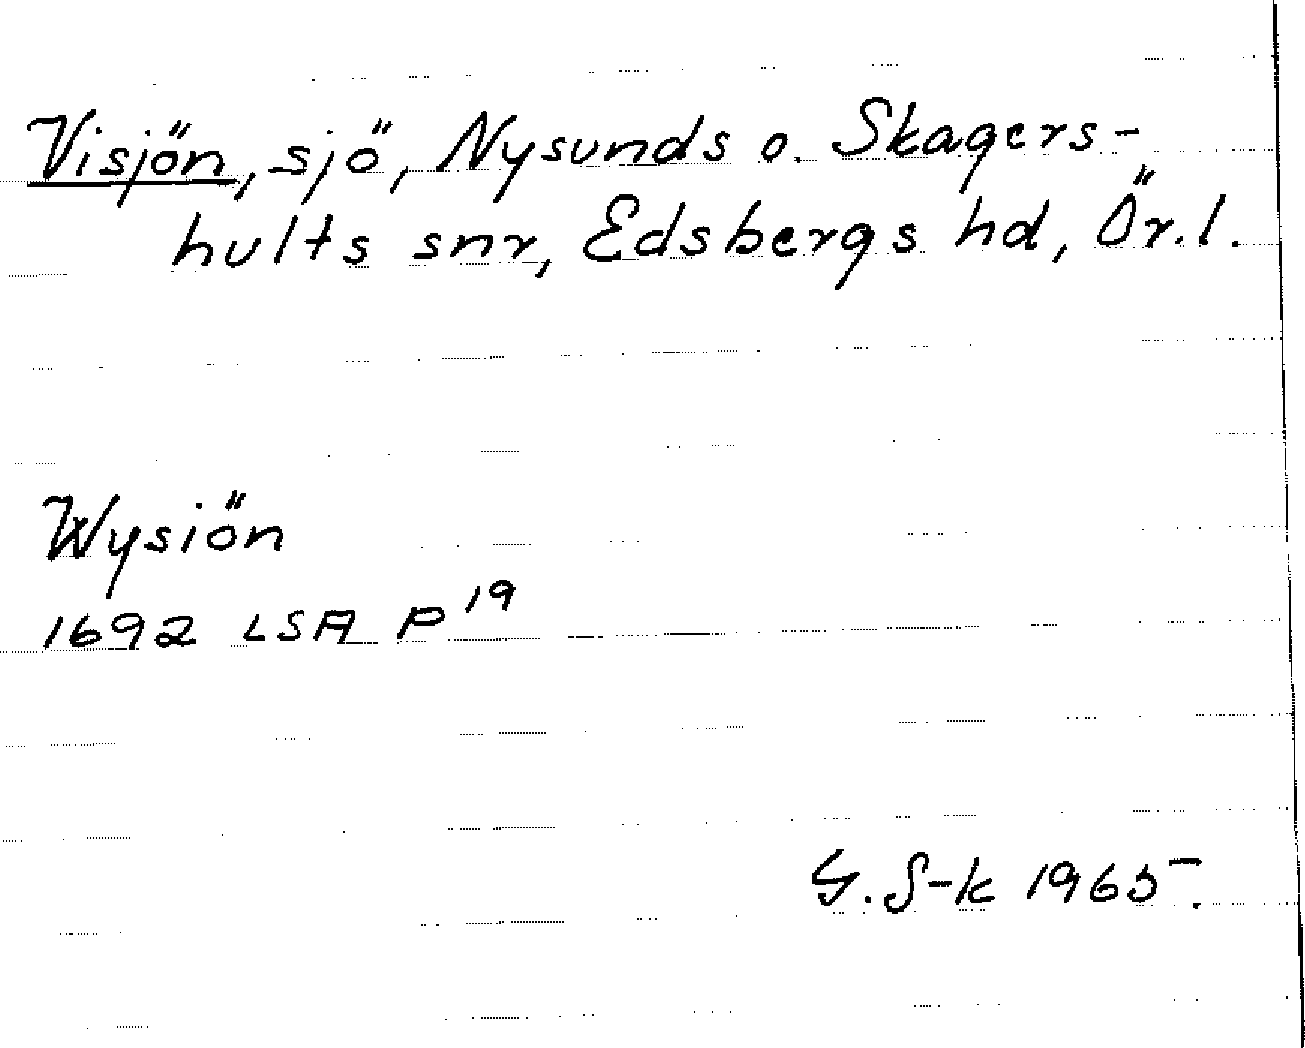 Visjön, sjö, Nysunds o. Skagers-
hults snr, Edsbergs hd, Ör.l.
Wysiön
1692 LSA P 19
G. S-k 1965.